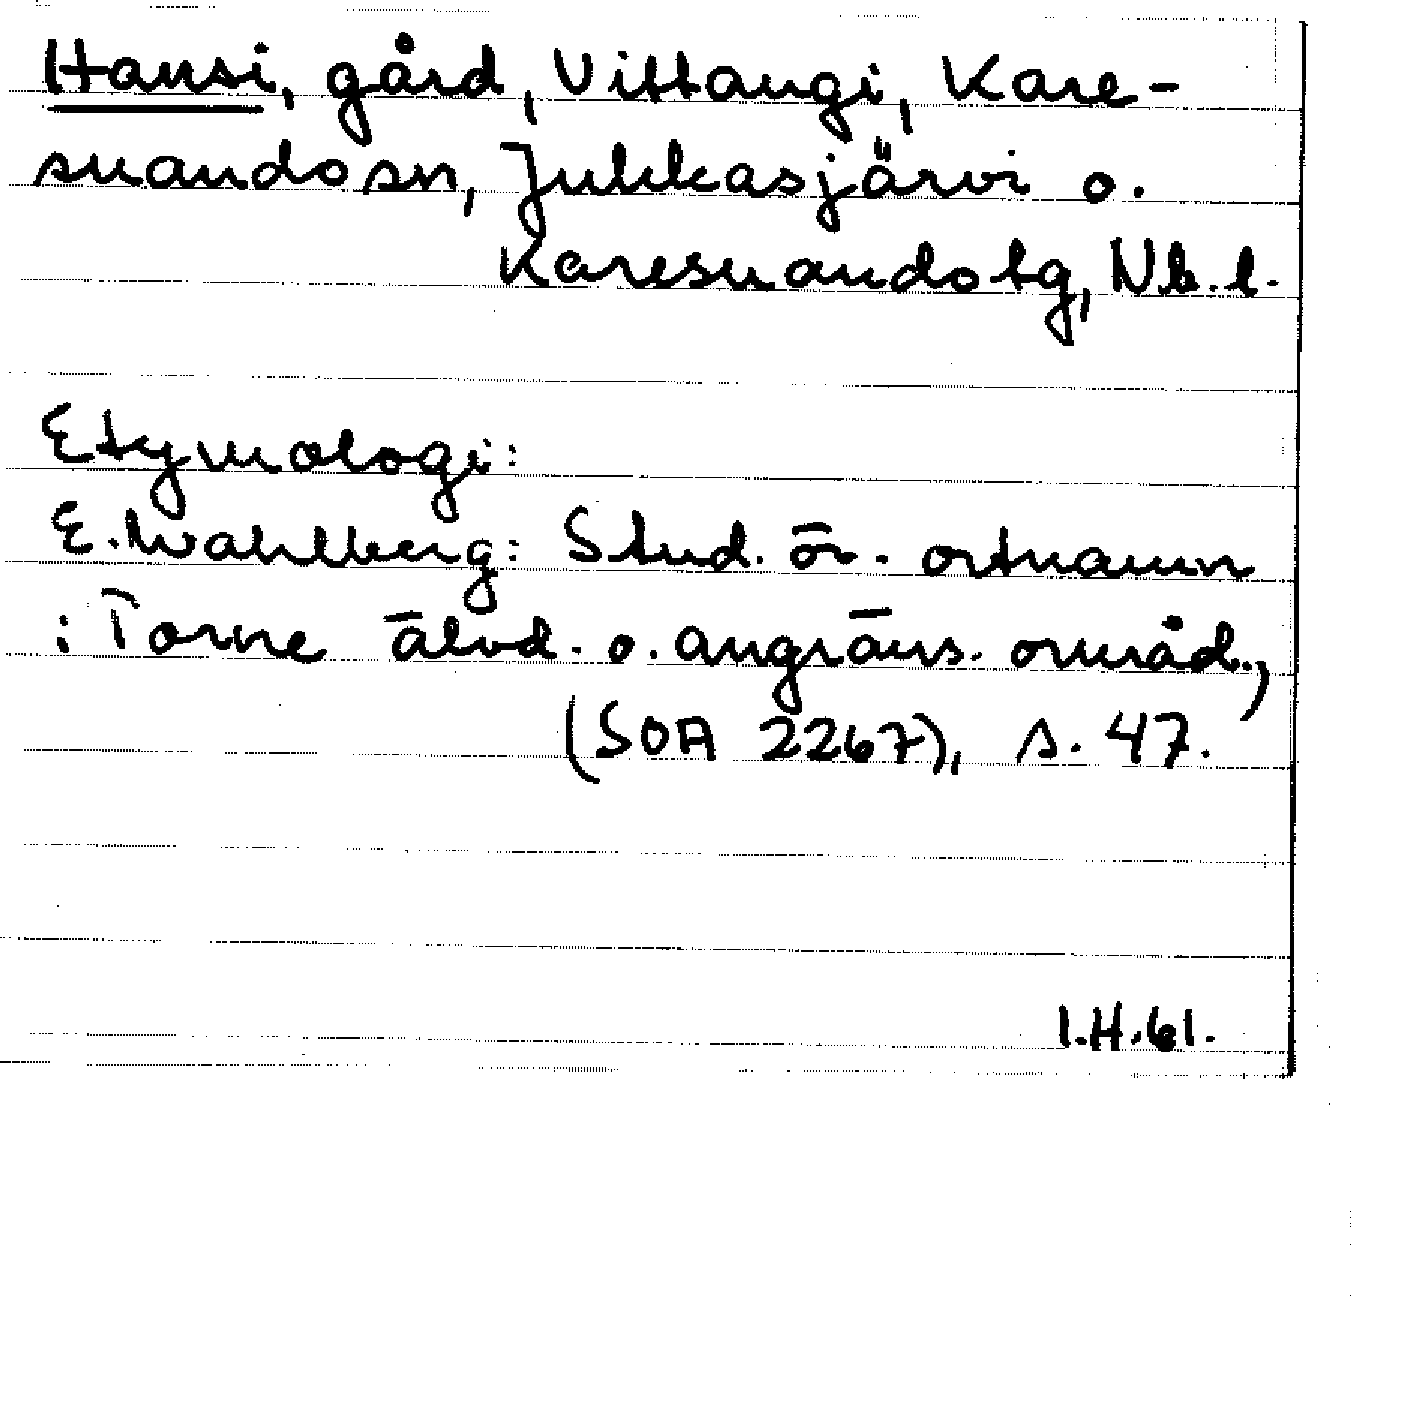 Hansi, gård, Vittangi, Kare-
suando sn, Jukkasjärvi o.
Karesuando tg, Nb. l.
Etymologi:
E. Wahlberg: Stud. öv. ortnamn
i Torne älvd. o. angräns. områd.,
(SOA 2267), s. 47.
I.H.61.